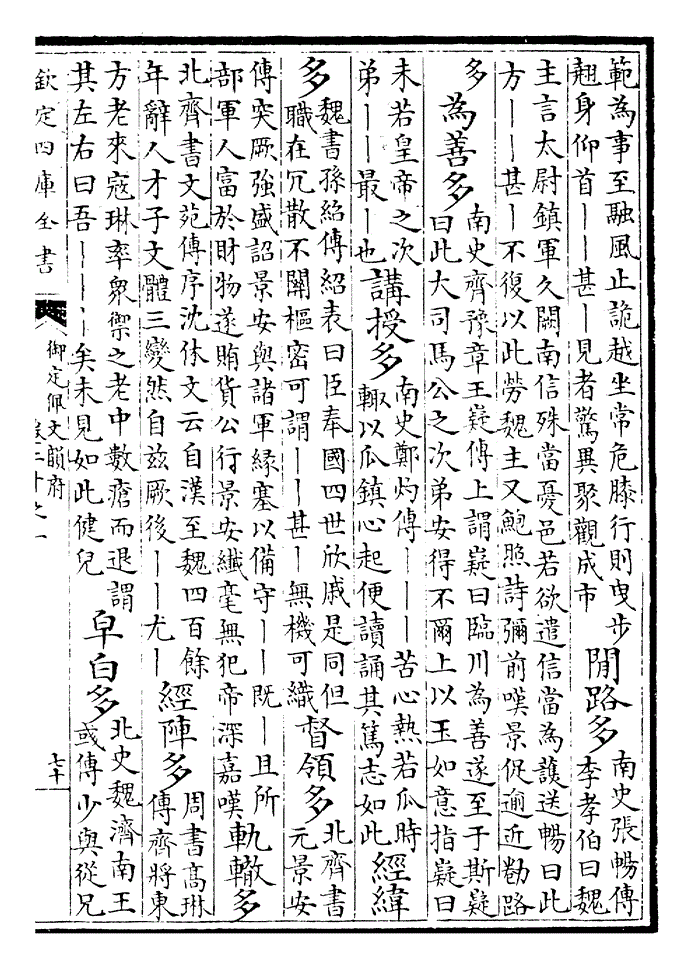 範為事至融風止詭越坐常危膝行則曳步
翹身仰首――甚―見者驚異聚觀成市
閒路多
南史張暢傳
李孝伯曰魏
主言太尉鎮軍久闕南信殊當憂邑若欲遣信當為護送暢曰此
方――甚―不復以此勞魏主又鮑照詩彌前嘆景促逾近勌路
多
為善多
南史齊豫章王嶷傳上謂嶷曰臨川為善遂至于斯嶷
曰此大司馬公之次弟安得不爾上以玉如意指嶷曰
未若皇帝之次
弟――最―也
講授多
南史鄭灼傳―――苦心熱若瓜時
輒以瓜鎮心起便讀誦其篤志如此
經緯
多
魏書孫紹傳紹表曰臣奉國四世欣戚是同但
職在冗散不關樞密可謂――甚―無機可織
督領多
北齊書
元景安
傳突厥強盛詔景安與諸軍緣塞以備守――既―且所
部軍人富於財物遂賄貨公行景安纖毫無犯帝深嘉嘆
軌轍多
北齊書文苑傳序沈休文云自漢至魏四百餘
年辭人才子文體三變然自茲厥後――尤―
經陣多
周書高琳
傳齊將東
方老來寇琳率眾禦之老中數瘡而退謂
其左右曰吾――――矣未見如此健兒
皁白多
北史魏濟南王
或傳少與從兄
欽定四庫全書
御定佩文韻府
卷二十之一
七十